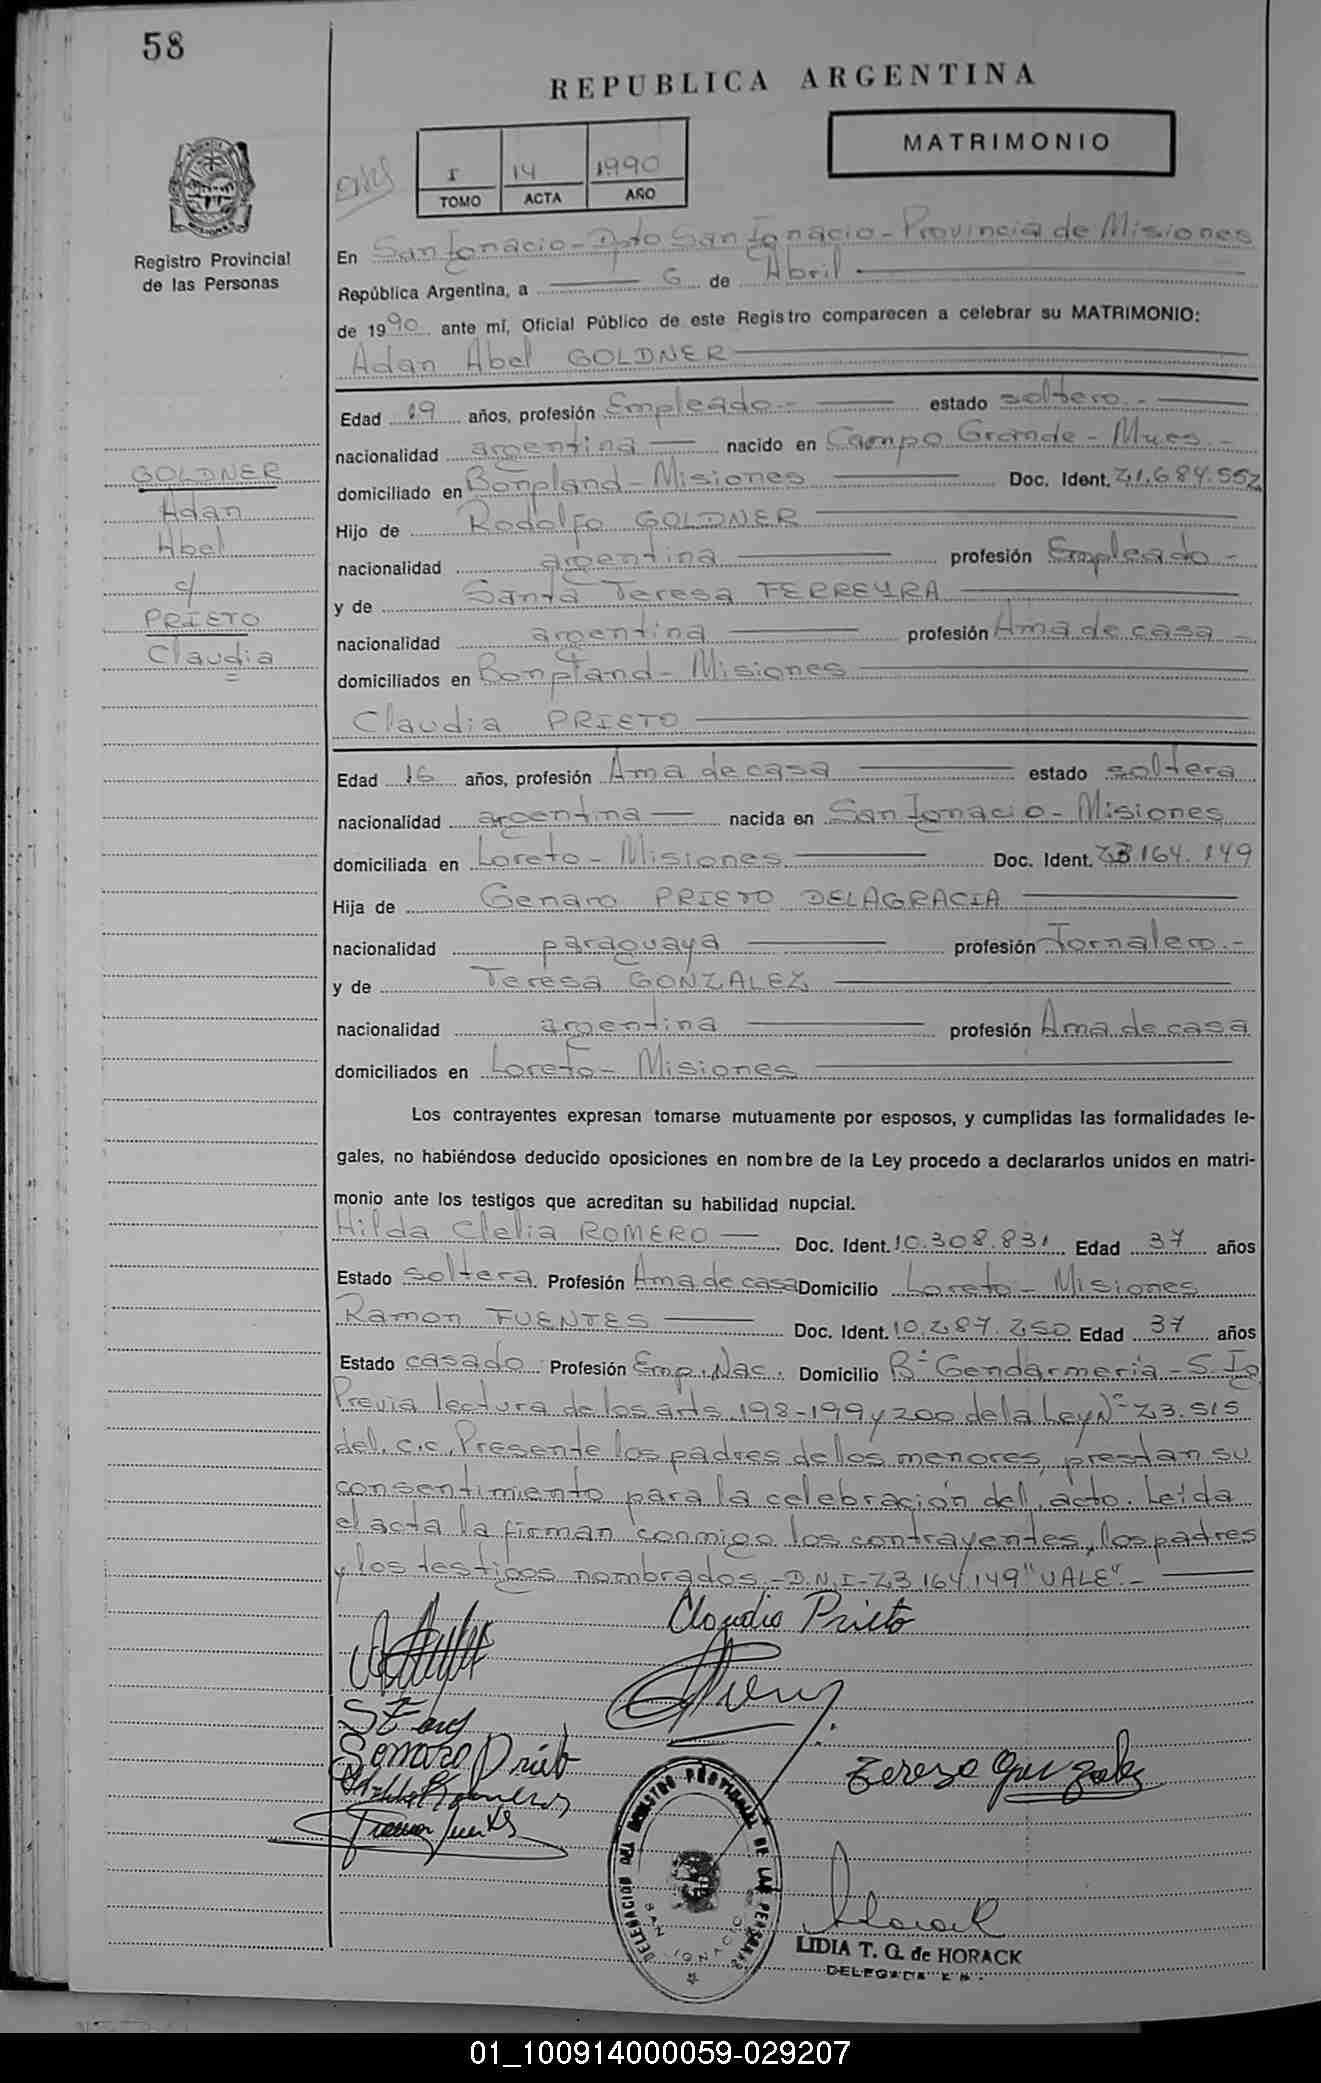 58
REPUBLICA ARGENTINA
MATRIMONIO
I 14 1990
TOMO ACTA AÑO
Registro Provincial
de las Personas
En San Ignacio - Dpto San Ignacio - Provincia de Misiones
República Argentina, a 6 de Abril
de 1990 ante mí, Oficial Público de este Registro comparecen a celebrar su MATRIMONIO:
Adan Abel GOLDNER
Edad 19 años, profesión Empleado.- estado soltero.-
nacionalidad argentina nacido en Campo Grande - Mnes.-
domiciliado en Bonpland - Misiones Doc. Ident. 21.684.552
Hijo de Rodolfo GOLDNER
nacionalidad argentina profesión Empleado-
y de Santa Teresa FERREYRA
nacionalidad argentina profesión Ama de casa -
domiciliados en Bonpland - Misiones
GOLDNER
Adan
Abel
c/
PRIETO
Claudia
Claudia PRIETO
Edad 16 años, profesión Ama de casa estado soltera
nacionalidad argentina nacida en San Ignacio - Misiones
domiciliada en Loreto - Misiones Doc. Ident. 23.164.149
Hija de Genaro PRIETO DELAGRACIA
nacionalidad paraguaya profesión Jornalero.-
y de Teresa GONZALEZ
nacionalidad argentina profesión Ama de casa
domiciliados en Loreto - Misiones
Los contrayentes expresan tomarse mutuamente por esposos, y cumplidas las formalidades le-
gales, no habiéndose deducido oposiciones en nombre de la Ley procedo a declararlos unidos en matri-
monio ante los testigos que acreditan su habilidad nupcial.
Hilda Clelia ROMERO Doc. Ident. 10.308.831 Edad 37 años
Estado soltera Profesión Ama de casa Domicilio Loreto - Misiones
Ramon FUENTES Doc. Ident. 10.287.250 Edad 37 años
Estado casado Profesión Emp. Nac. Domicilio Bº Gendarmería - S. Ig
Previa lectura de los arts. 198-199 y 200 de la Ley Nº 23.515
del C.C. Presente los padres de los menores, prestan su
consentimiento para la celebración del acto. Leída
el acta la firman conmigo los contrayentes, los padres
y los testigos nombrados.- D.N.I - 23.164.149 "VALE".-
Claudia Prieto
Teresa Gonzalez
DELEGACION DEL REGISTRO PROVINCIAL DE LAS PERSONAS
SAN IGNACIO
LIDIA T. G. de HORACK
DELEGADA
01_100914000059-029207